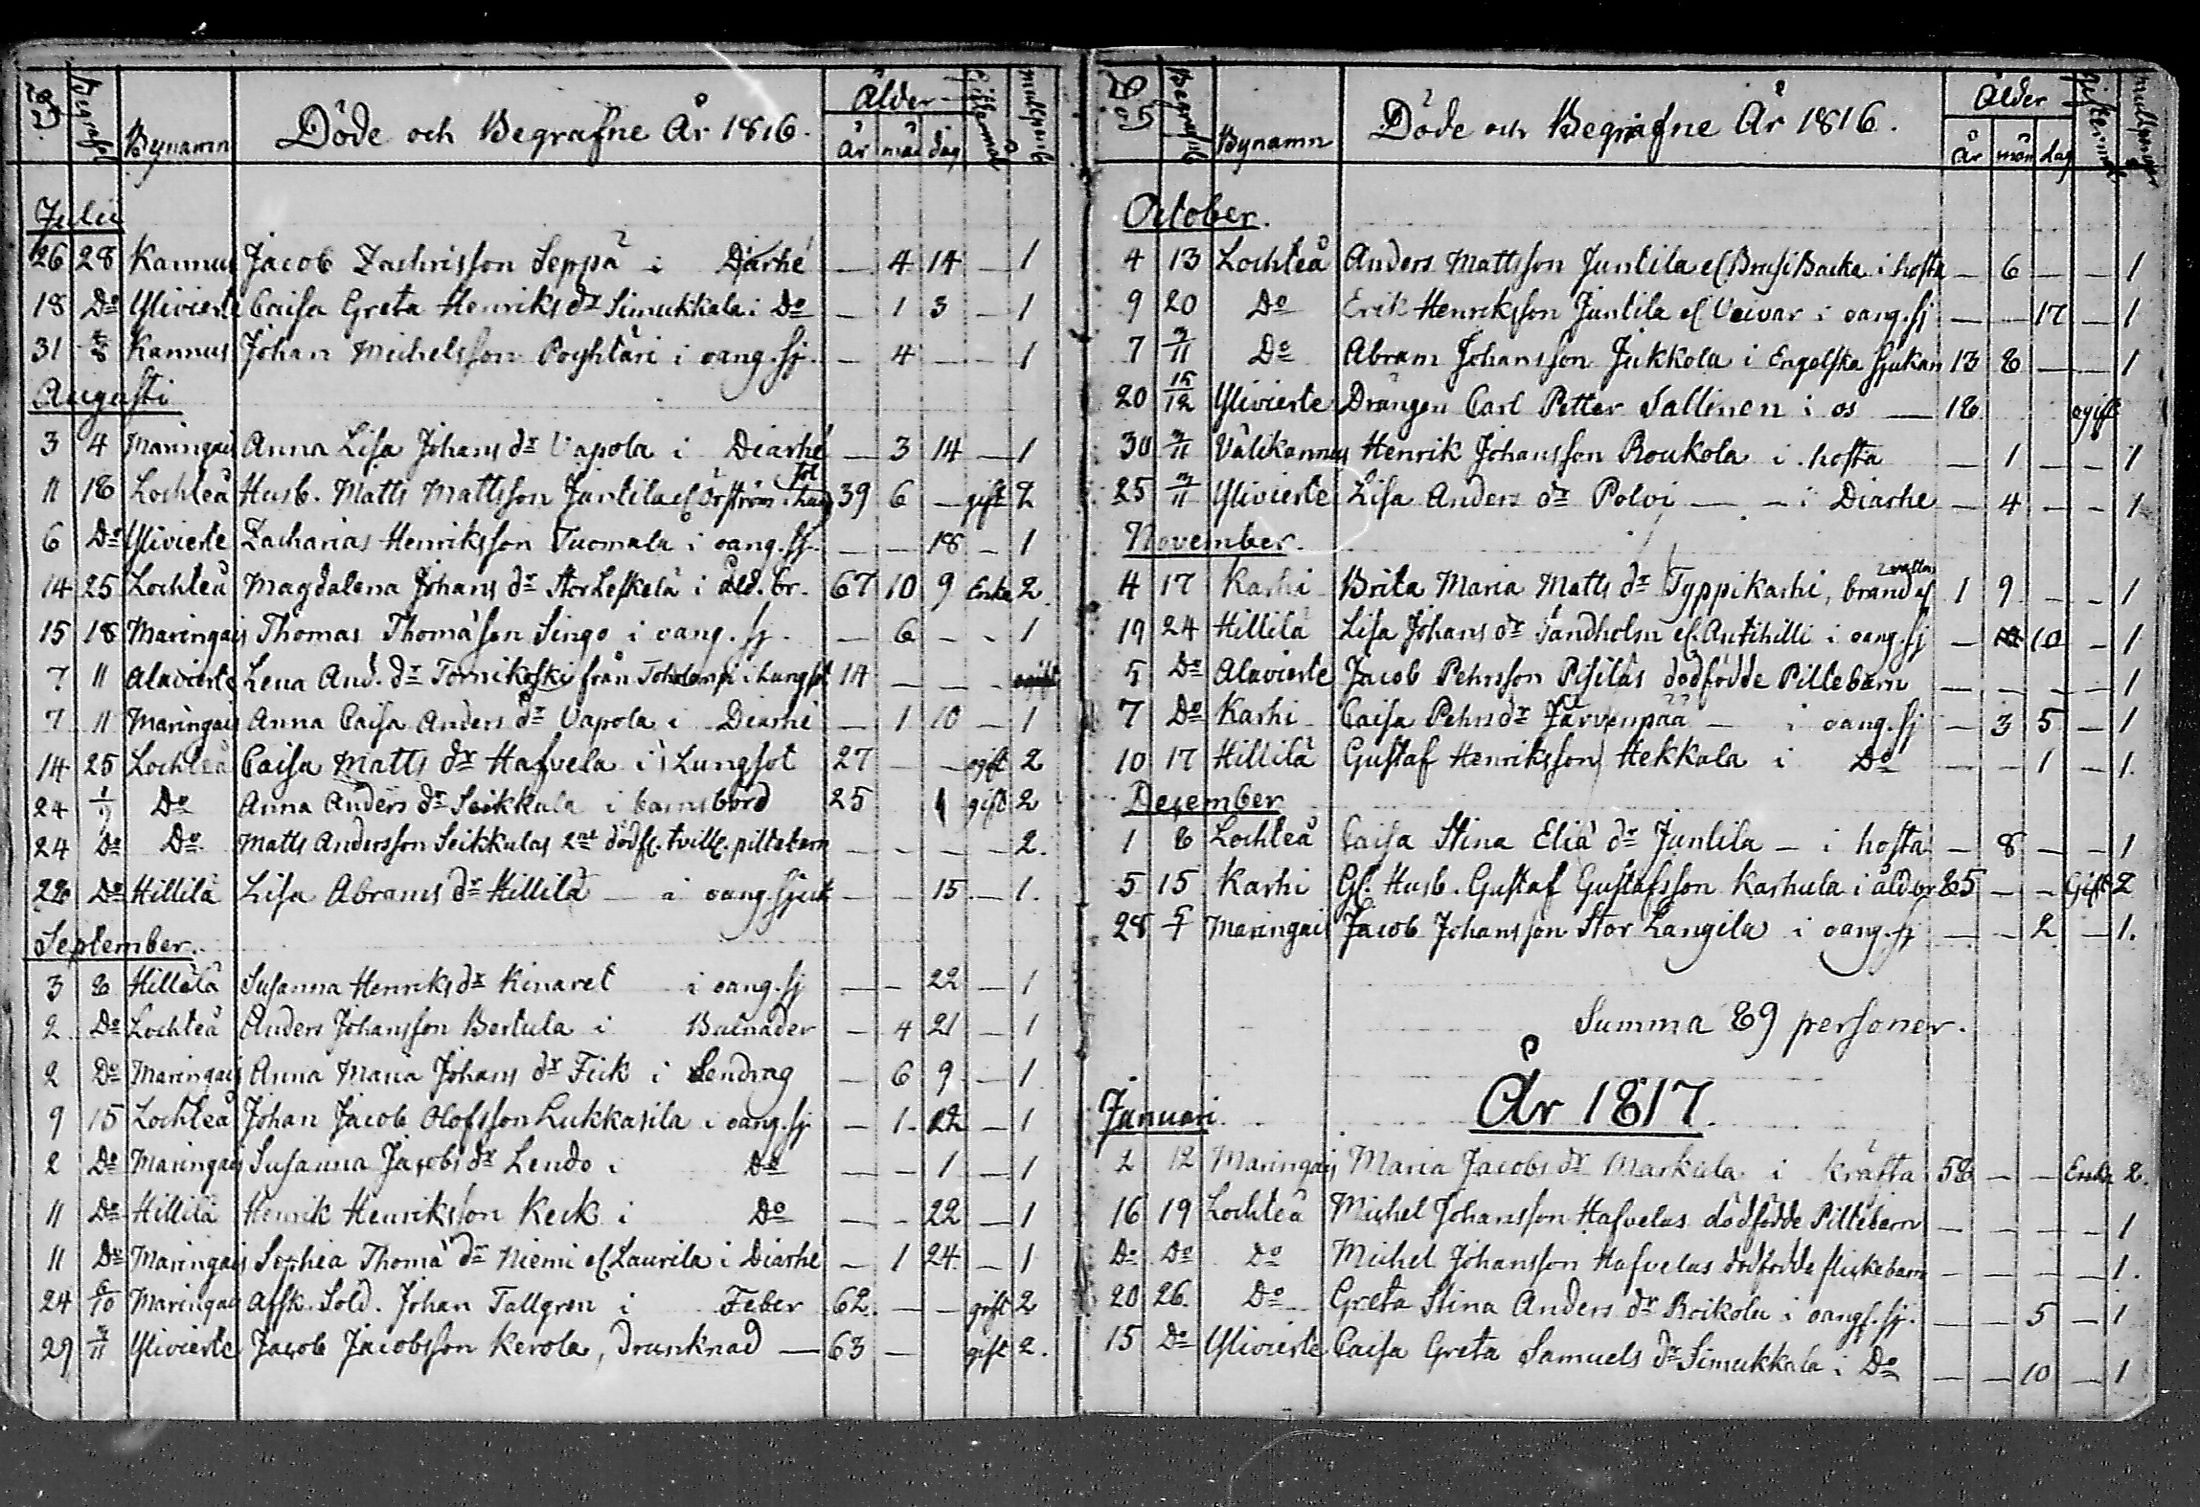 Död Begrafne Bynamn Döde och Begrafne År 1816. Ålder År mån dag Giftermål
Julii
26 28 Kannus Jacob Zachrisson Seppä i Diarhé — 4 14 — 1
18 Do Ylivierte Caisa Greta Henriks dr Simukkala i Do — 1 3 — 1
31 4/8 Kannus Johan Michelsson Poyhtäri i oang. sj. — 4 — — 1
Augusti
3 4 Maringais Anna Lisa Johans dr Vapola i Diarhé — 3 14 — 1
11 18 Lochteå Husb. Matts Mattsson Juntila el Örström i Lungsot 39 6 — gift 2
6 Do Ylivierte Zacharias Henriksson Tuomala i oang. sj. — — 18 — 1
14 25 Lochteå Magdalena Johans dr Stor Leskelä i åld. br. 67 10 9 Enka 2
15 18 Maringais Thomas Thomäson Singo i oang. sj. — 6 — — 1
7 11 Alavierte Lena And. dr Tornikoski från Toholampi i Lungsot 14 — — —
7 11 Maringais Anna Caisa Anders dr Vapola i Diarhé — 1 10 — 1
14 25 Lochteå Caisa Matts dr Hafvela i Lungsot 27 — — ogift 2
24 1/9 Do Anna Anders dr Seikkula i barnsbörd 25 gift 2
24 Do Do Matts Andersson Seikkulas 2ne dödf. tvill. piltebarn — — — — 2.
28 Do Hillilä Lisa Abrams dr Hillilä — i oang. sjuk — — 15 — 1.
September.
3 8 Hillilä Susanna Henriks dr Kinaret i oang. sj — — 22 — 1
2 Do Lochteå Anders Johansson Bertula i Bulnader — 4 21 — 1
2 Do Maringais Anna Maria Johans dr Fick i Sendrag — 6 9 — 1
9 15 Lochteå Johan Jacob Olofsson Lukkarila i oang. sj. — 1. 12 — 1
2 Do Maringais Susanna Jacobs dr Lendo i Do — — 1 — 1
11 Do Hillilä Henrik Henriksson Keck i Do — — 22 — 1
11 Do Maringais Sophia Thomä dr Niemi el Laurila i Diarhé — 1 24. — 1
24 6/10 Maringais Afsk. Sold. Johan Tallgren i Feber 62. — — gift 2
29 3/11 Ylivierte Jacob Jacobsson Kerola, Drunknad — 63 — gift 2.
Död Begrafne Bynamn Döde och Begrafne År 1816. Ålder År mån dag Giftermål Mullpengar
October.
4 13 Lochteå Anders Mattsson Juntila el Brusi Backa i hosta — 6 — — 1
9 20 Do Erik Henriksson Juntila el Veivar i oang. sj — — 17 — 1
7 3/11 Do Abram Johansson Jukkola i Engelska sjukan 13 8 — — 1
20 15/12 Ylivierte Drängen Carl Petter Sallinen i os — 18 ogift
30 3/11 Välikannus Henrik Johansson Roukola i hosta — 1 — — 1
25 3/11 Ylivierte Lisa Anders dr Polvi — — i Diarhe — 4 — — 1
November.
4 17 Karhi Brita Maria Matts dr Typpikarhi, bränd af 1 9 — — 1
19 24 Hillilä Lisa Johans dr Sandholm el. Antihilli i oang. sj — 10 — 1
5 Do Alavierte Jacob Pehrsson Pisiläs dödfödde Piltebarn — — — — 1
7 Do Karhi Caisa Pehrs dr Järvenpää — i oang. sj — 3 5 — 1
10 17 Hillilä Gustaf Henriksson Hekkala i Do — — 1 — 1.
December
1 8 Lochteå Caisa Stina Eliä dr Juntila — i hosta — 8 — — 1
5 15 Karhi Gl. Husb. Gustaf Gustafsson Karhula i åld. br 85 — — Gift 2
28 5/1 Maringais Jacob Johansson Stor Langila i oang. sj — — 2 — 1.
Summa 89 personer.
År 1817.
Januari.
2 12 Maringais Maria Jacobs dr Markula i kräfta 58 — — Enka 2.
16 19 Lochteå Michel Johansson Hafvelas dödfödde Piltebarn — — — — 1
Do Do Do Michel Johansson Hafvelas dödfödde flickebarn — — — — 1.
20 26. Do Greta Stina Anders dr Roikola i oang. sj. — — 5 — 1
15 Do Ylivierte Caisa Greta Samuels dr Simukkala i Do — — 10 — 1